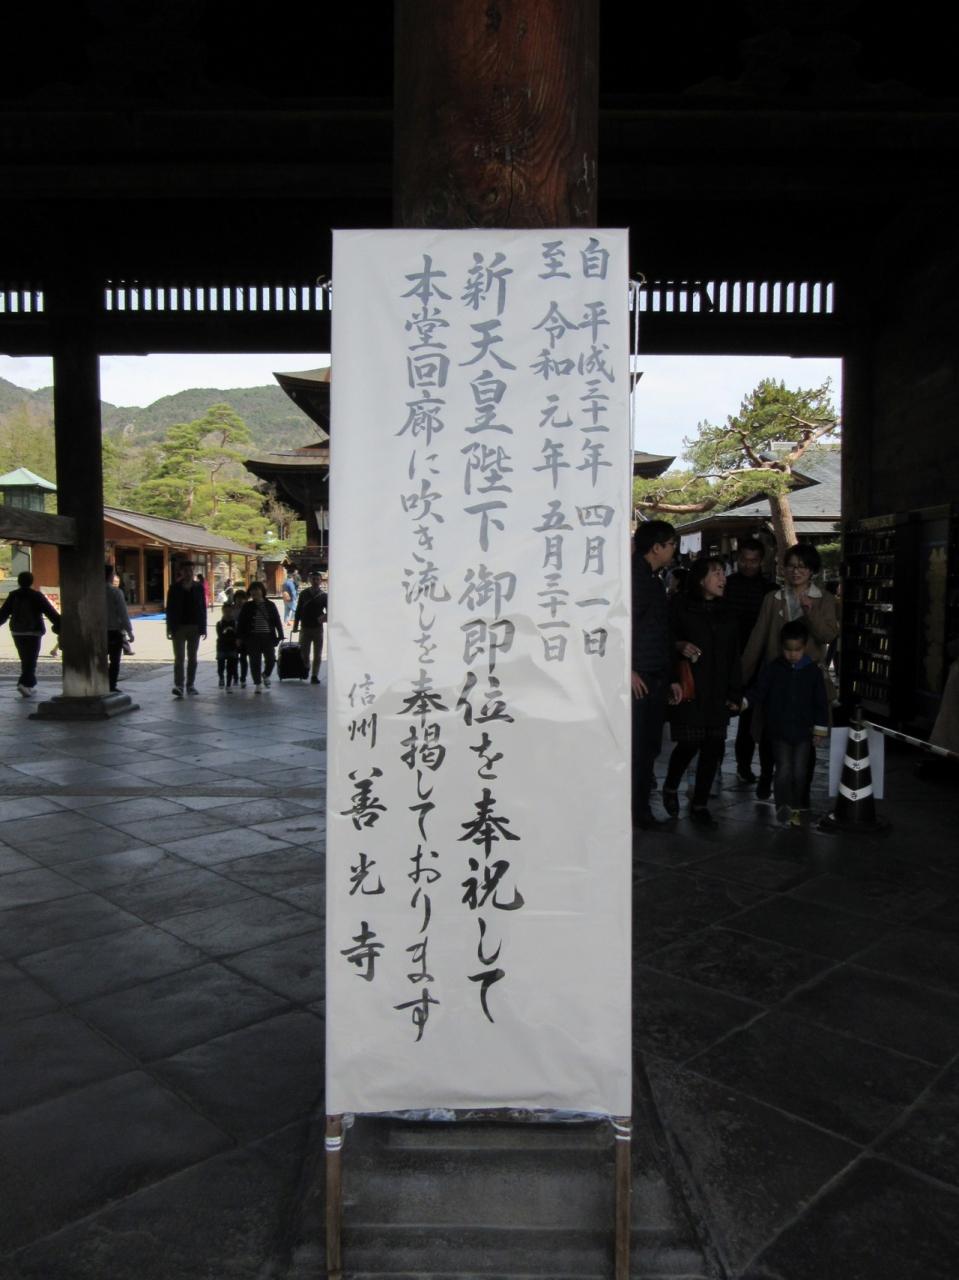 自 平成三十一年 四月 一日
至 令和 元年 五月三十一日
新天皇陛下 御即位を奉祝して
本堂回廊に吹き流しを奉掲しております
信州 善光寺